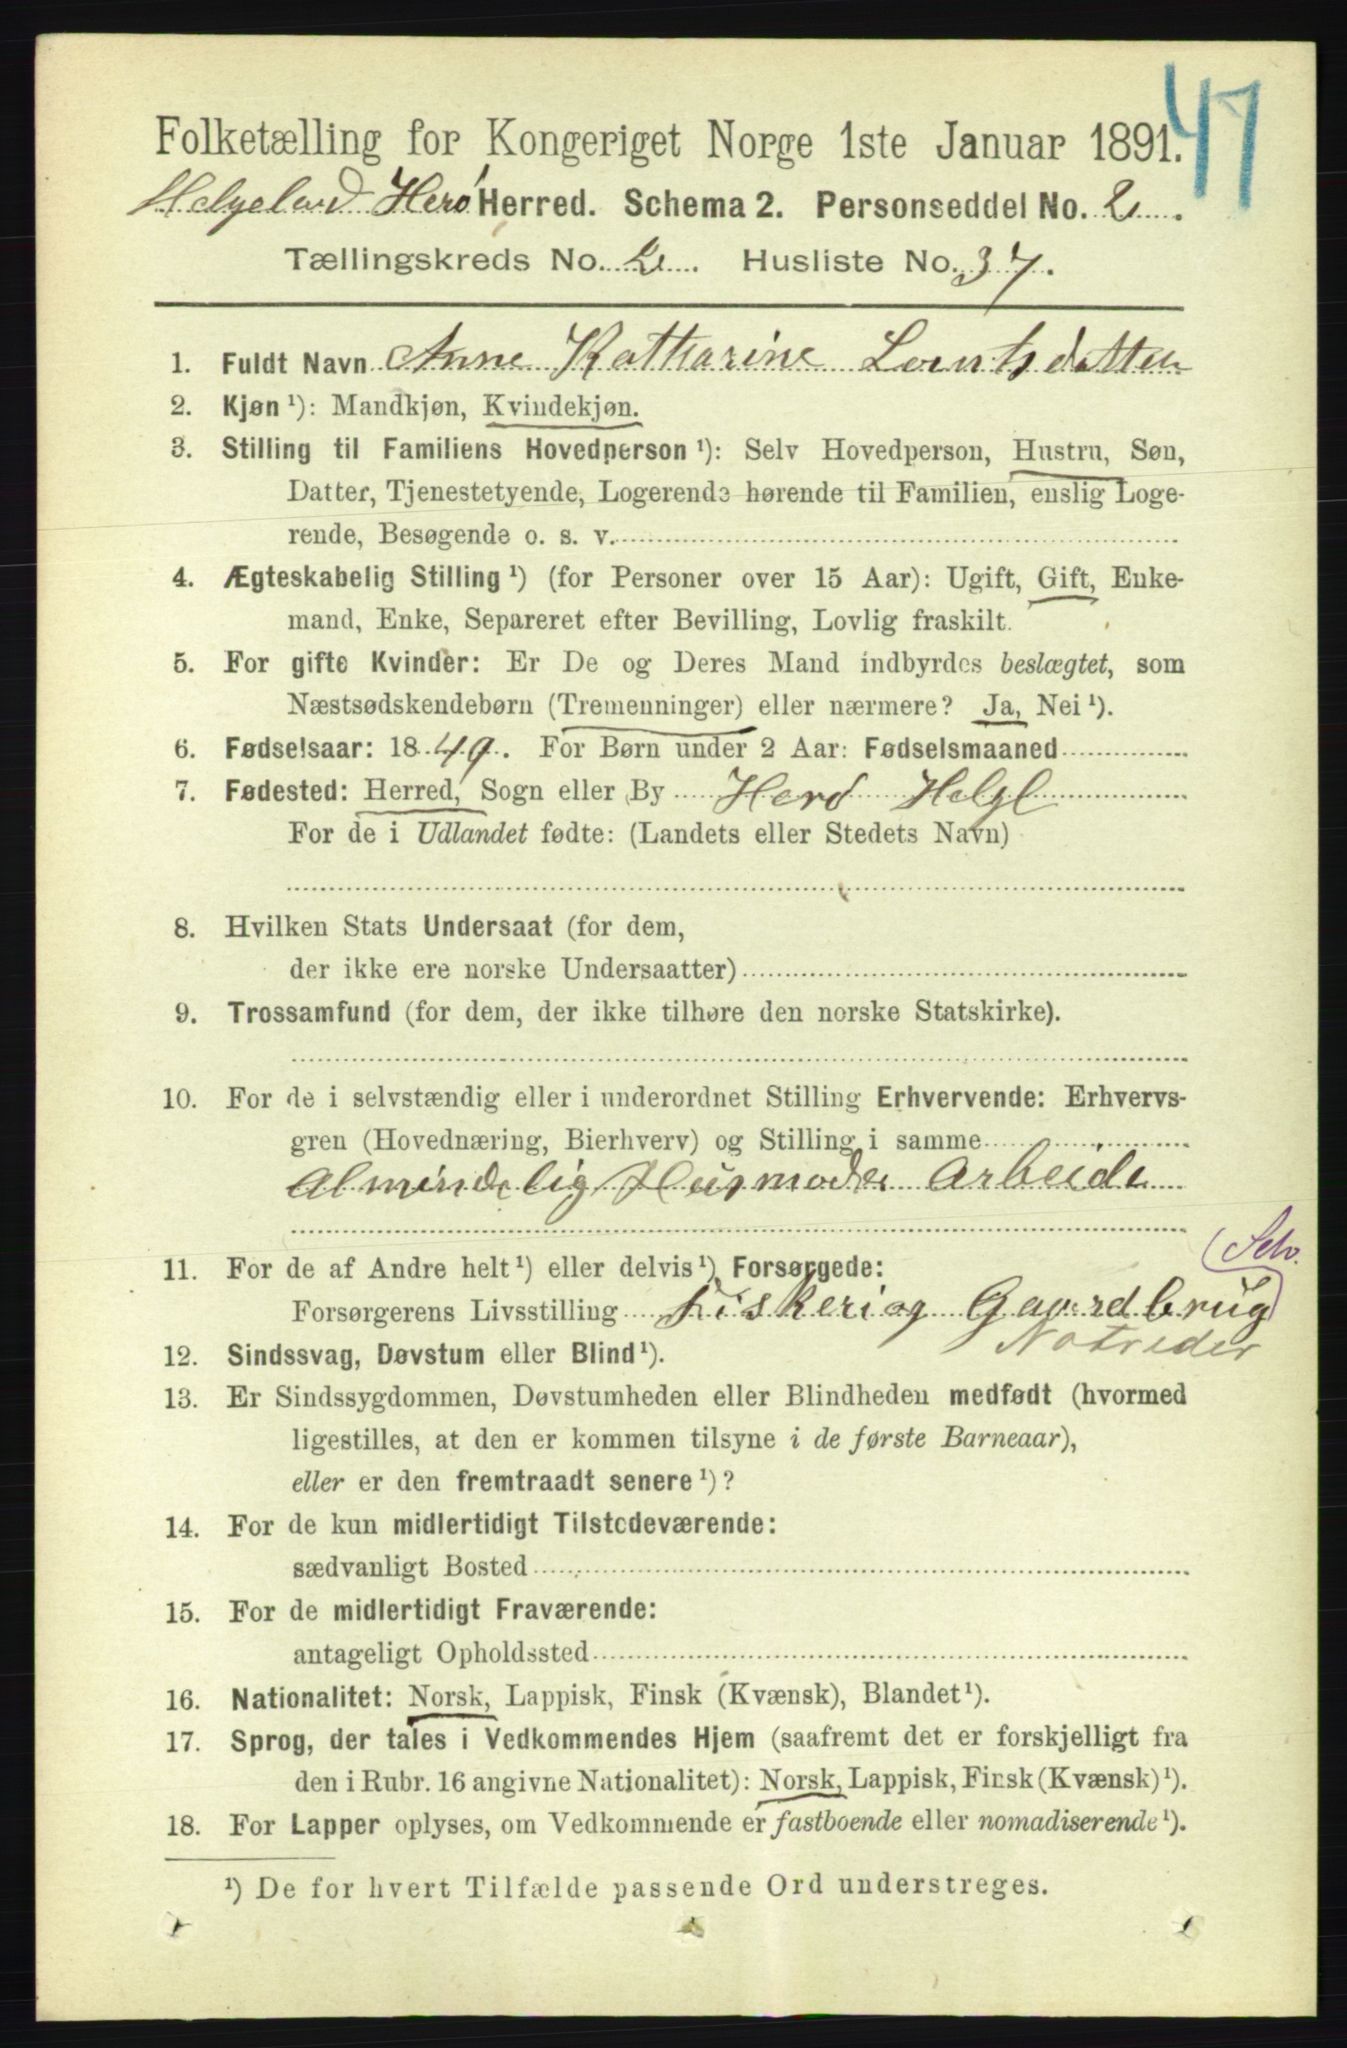 47
Folketælling for Kongeriget Norge 1ste Januar 1891.
Helgeland Herø Herred. Schema 2. Personseddel No. 2.
Tællingskreds No. 2. Husliste No. 37.
1. Fuldt Navn Anne Katharine Lorntsdatter
2. Kjøn ¹): Mandkjøn, Kvindekjøn.
3. Stilling til Familiens Hovedperson ¹): Selv Hovedperson, Hustru, Søn,
Datter, Tjenestetyende, Logerende hørende til Familien, enslig Loge-
rende, Besøgende o. s. v.
4. Ægteskabelig Stilling ¹) (for Personer over 15 Aar): Ugift, Gift, Enke-
mand, Enke, Separeret efter Bevilling, Lovlig fraskilt.
5. For gifte Kvinder: Er De og Deres Mand indbyrdes beslægtet, som
Næstsødskendebørn (Tremenninger) eller nærmere? Ja, Nei ¹).
6. Fødselsaar: 1849. For Børn under 2 Aar: Fødselsmaaned
7. Fødested: Herred, Sogn eller By Herø Helgl
For de i Udlandet fødte: (Landets eller Stedets Navn)
8. Hvilken Stats Undersaat (for dem,
der ikke ere norske Undersaatter)
9. Trossamfund (for dem, der ikke tilhøre den norske Statskirke).
10. For de i selvstændig eller i underordnet Stilling Erhvervende: Erhvervs-
gren (Hovednæring, Bierhverv) og Stilling i samme
Almindelig Husmoder Arbeide
11. For de af Andre helt ¹) eller delvis ¹) Forsørgede: (Selv.
Forsørgerens Livsstilling Fiskeri og Gaardbrug)
Notreder
12. Sindssvag, Døvstum eller Blind ¹).
13. Er Sindssygdommen, Døvstumheden eller Blindheden medfødt (hvormed
ligestilles, at den er kommen tilsyne i de første Barneaar),
eller er den fremtraadt senere ¹)?
14. For de kun midlertidigt Tilstedeværende:
sædvanligt Bosted
15. For de midlertidigt Fraværende:
antageligt Opholdssted
16. Nationalitet: Norsk, Lappisk, Finsk (Kvænsk), Blandet ¹).
17. Sprog, der tales i Vedkommendes Hjem (saafremt det er forskjelligt fra
den i Rubr. 16 angivne Nationalitet): Norsk, Lappisk, Finsk (Kvænsk) ¹).
18. For Lapper oplyses, om Vedkommende er fastboende eller nomadiserende ¹).
¹) De for hvert Tilfælde passende Ord understreges.